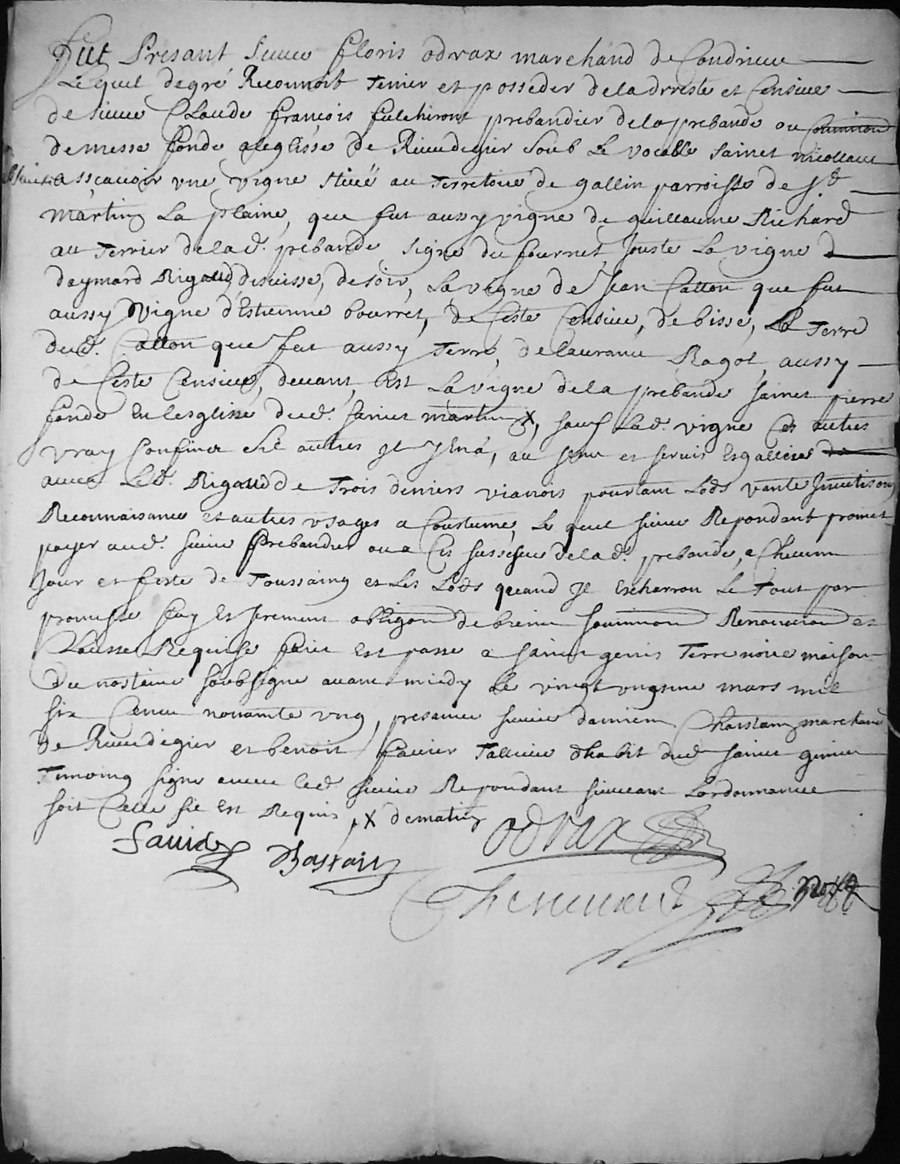 Fut Presant sieur floris odrax marchand de Condrieu
Lequel de gré Reconnoit tenir et posseder de la drreste et Censive
de sieur Claude françois fulchiront prebandier de la prebande ou Commion
de messe fonde a leglisse de Rivedegier soub le vocable sainct nicollaux
asscavoir une vigne situéé au Territoire de gallin parroisse de st
martin La plaine, que fut aussy vigne de guillaume Richard
au Terrier de la d. prebande, signé du fournet, Jouste La vigne d
daymard Rigaud, de soir, La vigne de Jean Catton que fut
aussy Vigne d'Estienne bourret, de Ceste Censive, de bisse, la Terre
dud. Catton que fut aussy Terre, de Laurant Ragot, aussy
de Ceste Censive, devant, Est La vigne de la prebande sainct pierre
fonde En lesglisse dud. sainct martin X, sauf lad. vigne Ces autres
vray Confins sie autres il y en a, au sens et servis Esgallée
avecq Led. Rigaud de Trois deniers vianois pourtant Lods vante Investison
Reconnaisance et autres usages a Coustume, Le quel sieur Repondant promet
payer aud. sieur prebandier ou a Ces susseseur de la d. prebande, a Chacun
Jour et feste de Toussaing et Les Lods quand Il Escherron Le Tout par
promesse foy Et serement obligon de biens soumion Renonciaon et
Clausse Requise faict Est passe a sainct genis Terrenoire maison
du nostaire soubsigne avant midy Le vingt ungsme mars mil
six Cent nonante ung, presance sieur damien Chastaing marchand
de Rivedegier et benoit favier Tallieur d'habit dud. sainct genis
Timoing signe avecq led. sieur Repondant suivant Lordonnance
soit Celle sie Est Requis, X de matin
odrax
favier Chastaing